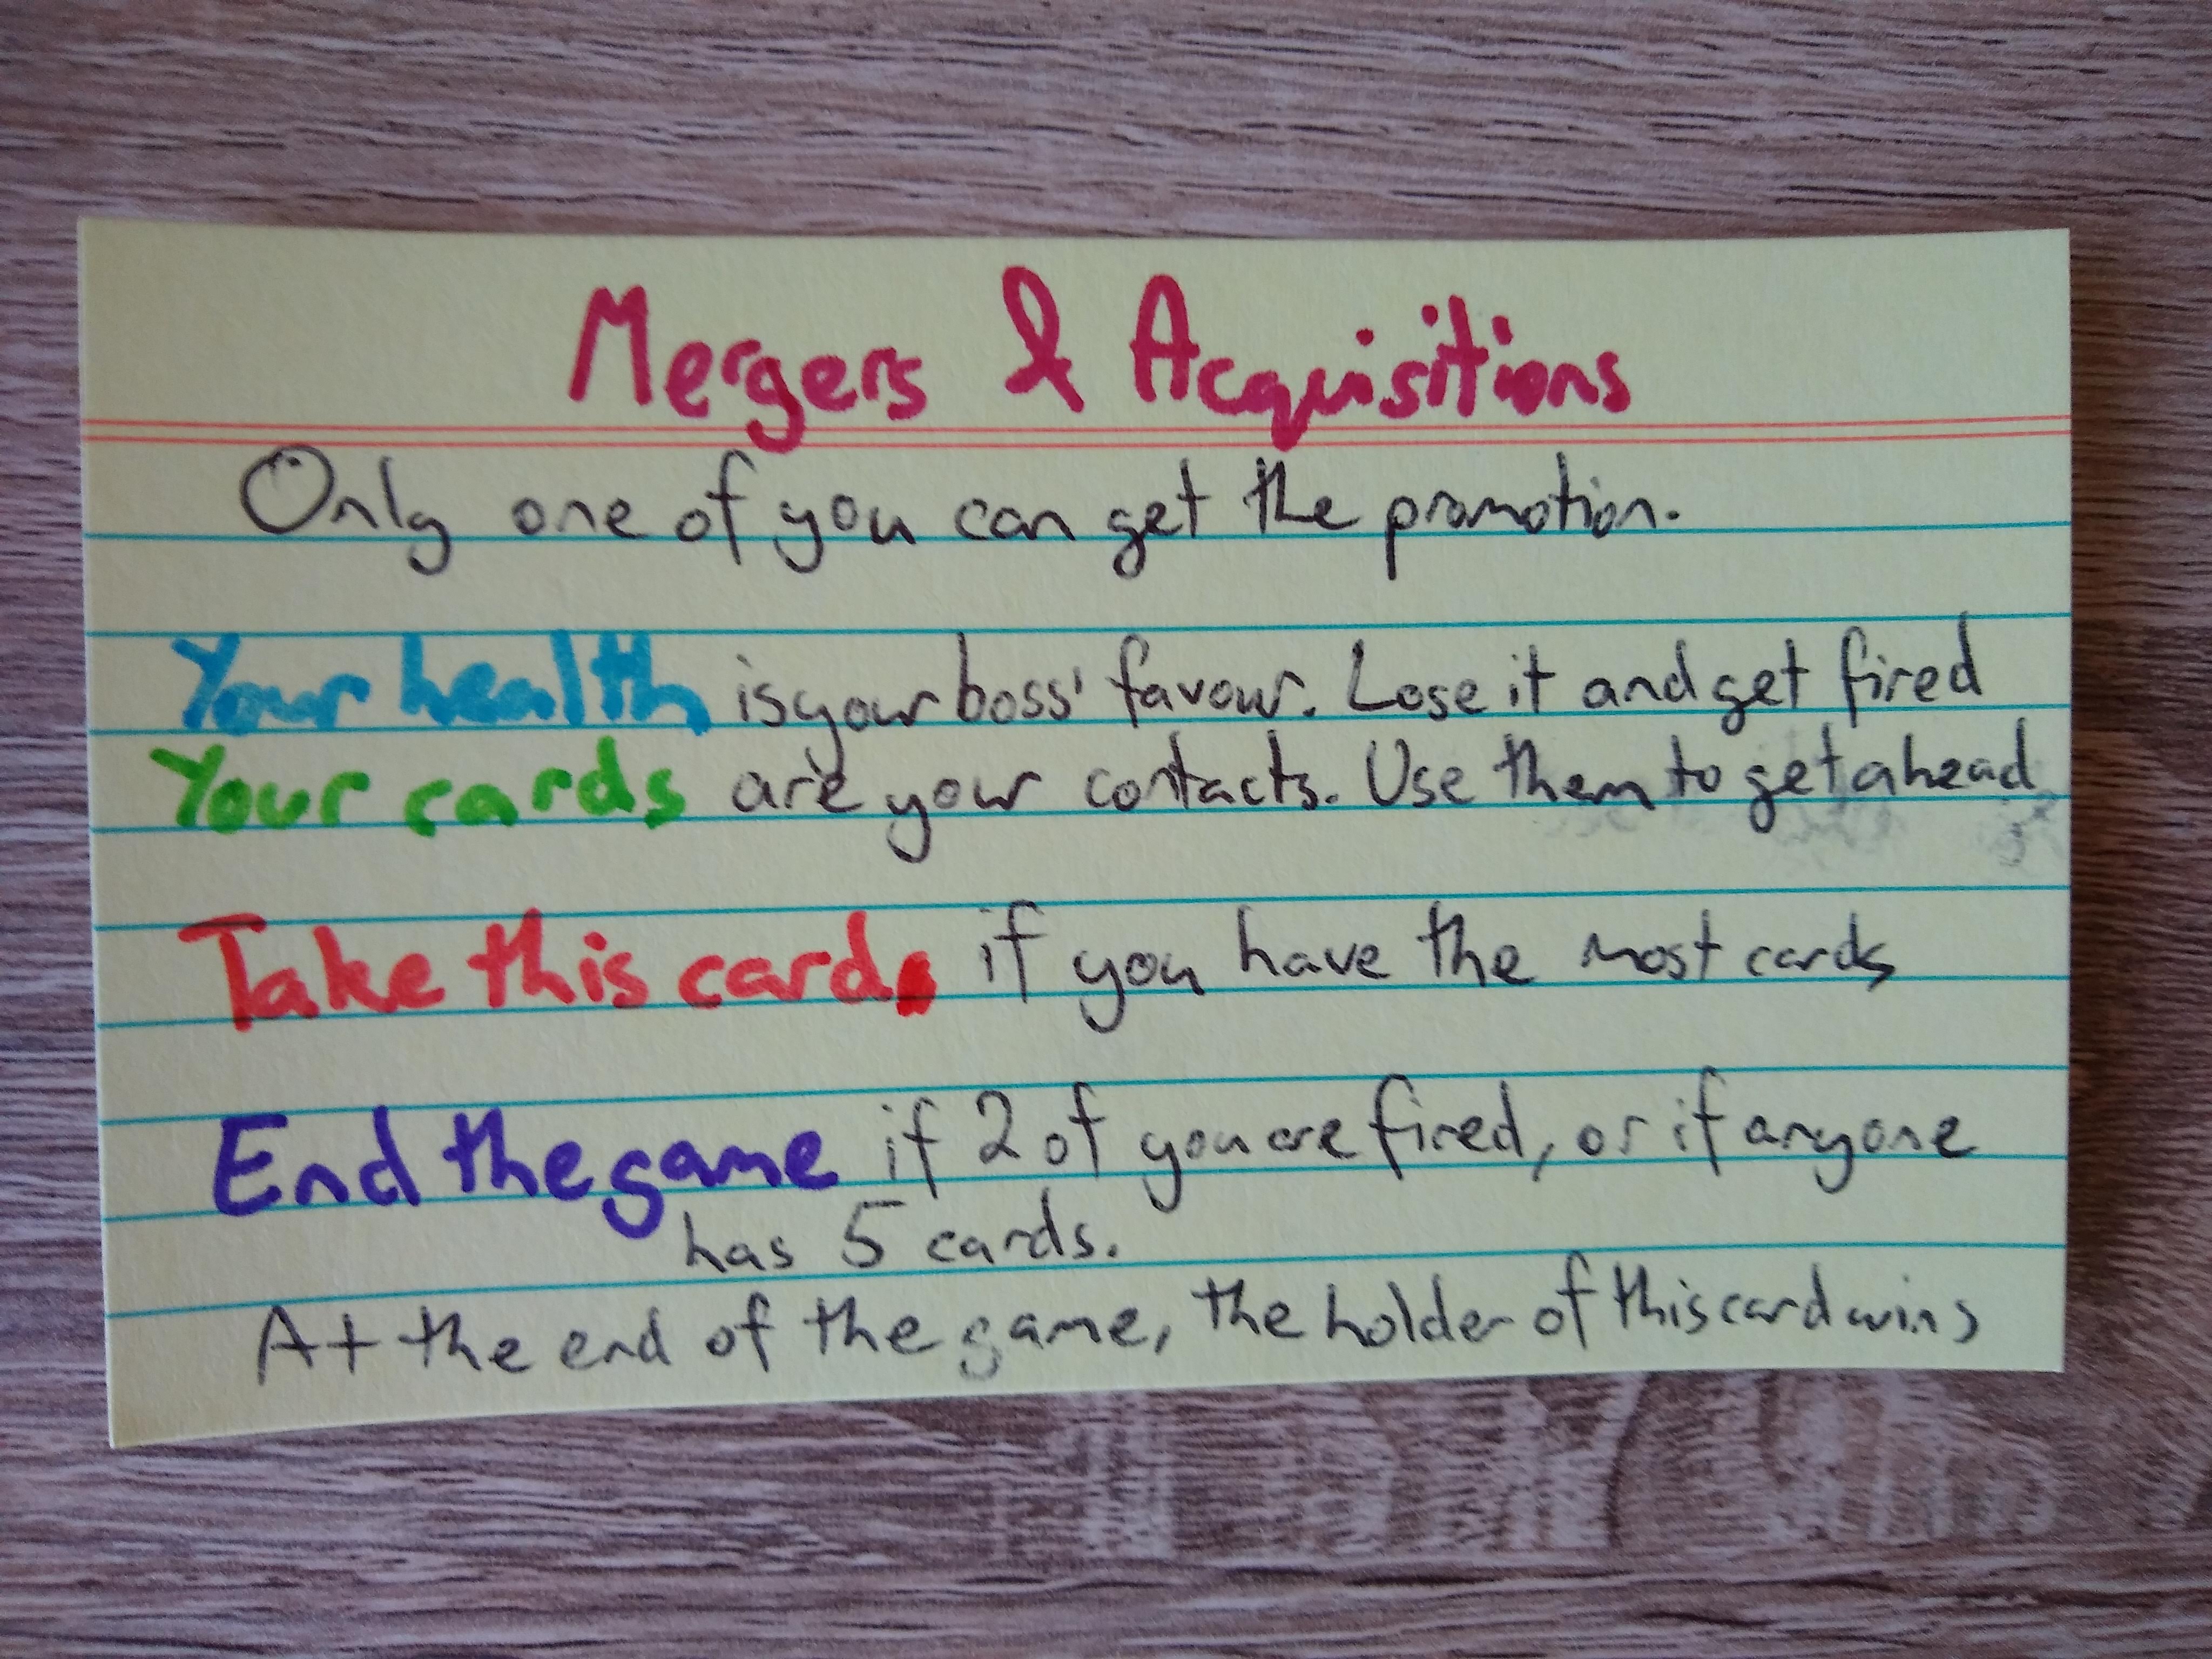 Mergers & Acquisitions
Only one of you can get the promotion.
Your health is your boss' favour. Lose it and get fired
Your cards are your contacts. Use them to get ahead
Take this card if you have the most cards
End the game if 2 of you are fired, or if anyone
has 5 cards.
At the end of the game, the holder of this card wins